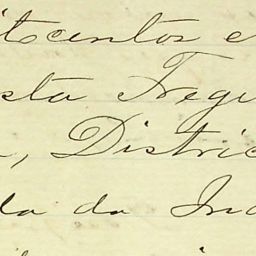 itcentos e
sta Fregu
, Distric
da da Ind